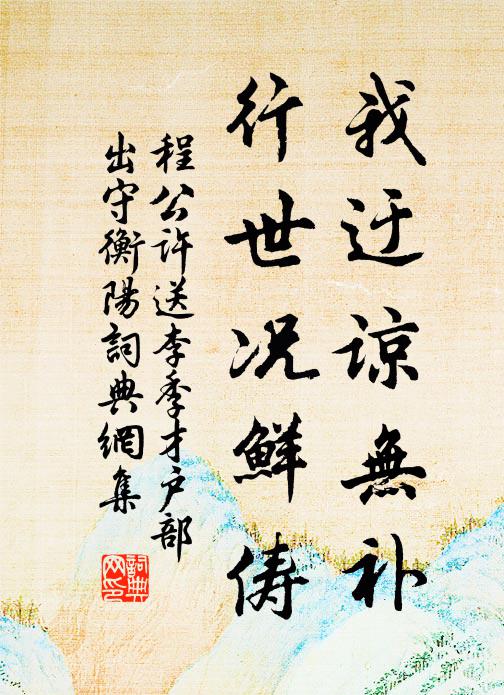 我迂谅無补
行世况鲜俦
程公许送李季才户部
出守衡陽詞典網集
詞典網印